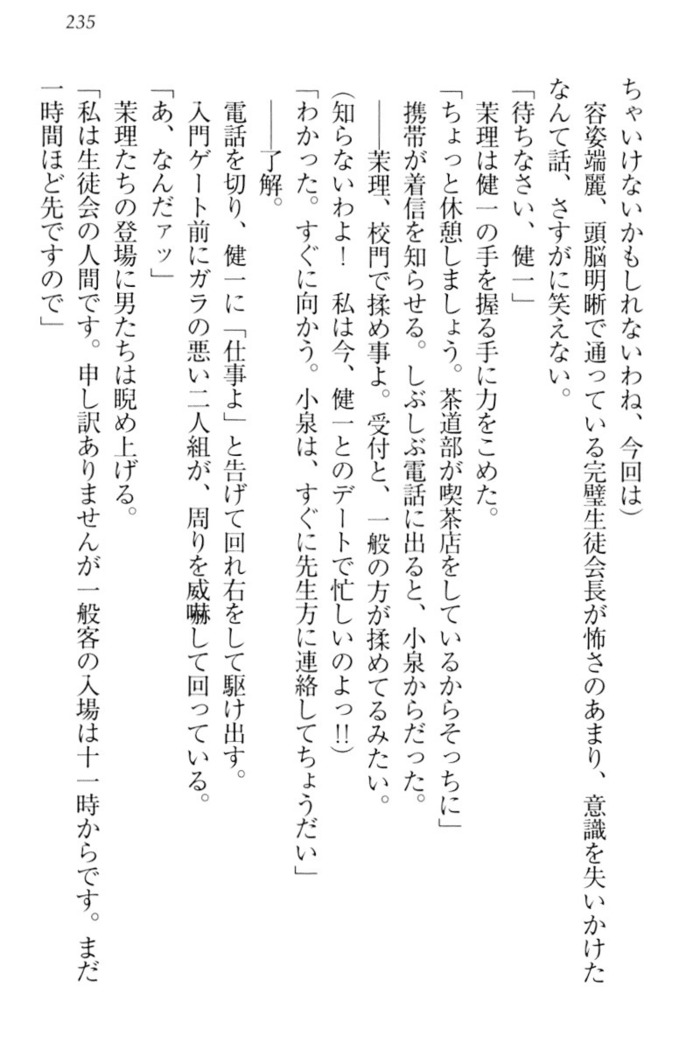 235
ちゃいけないかもしれないわね、今回は）
容姿端麗、頭脳明晰で通っている完璧生徒会長が怖さのあまり、意識を失いかけた
なんて話、さすがに笑えない。
「待ちなさい、健一」
茉理は健一の手を握る手に力をこめた。
「ちょっと休憩しましょう。茶道部が喫茶店をしているからそっちに」
携帯が着信を知らせる。しぶしぶ電話に出ると、小泉からだった。
――茉理、校門で揉め事よ。受付と、一般の方が揉めてるみたい。
（知らないわよ！　私は今、健一とのデートで忙しいのよっ!!）
「わかった。すぐに向かう。小泉は、すぐに先生方に連絡してちょうだい」
――了解。
電話を切り、健一に「仕事よ」と告げて回れ右をして駆け出す。
入門ゲート前にガラの悪い二人組が、周りを威嚇して回っている。
「あ、なんだァッ」
茉理たちの登場に男たちは睨め上げる。
「私は生徒会の人間です。申し訳ありませんが一般客の入場は十一時からです。まだ
一時間ほど先ですので」